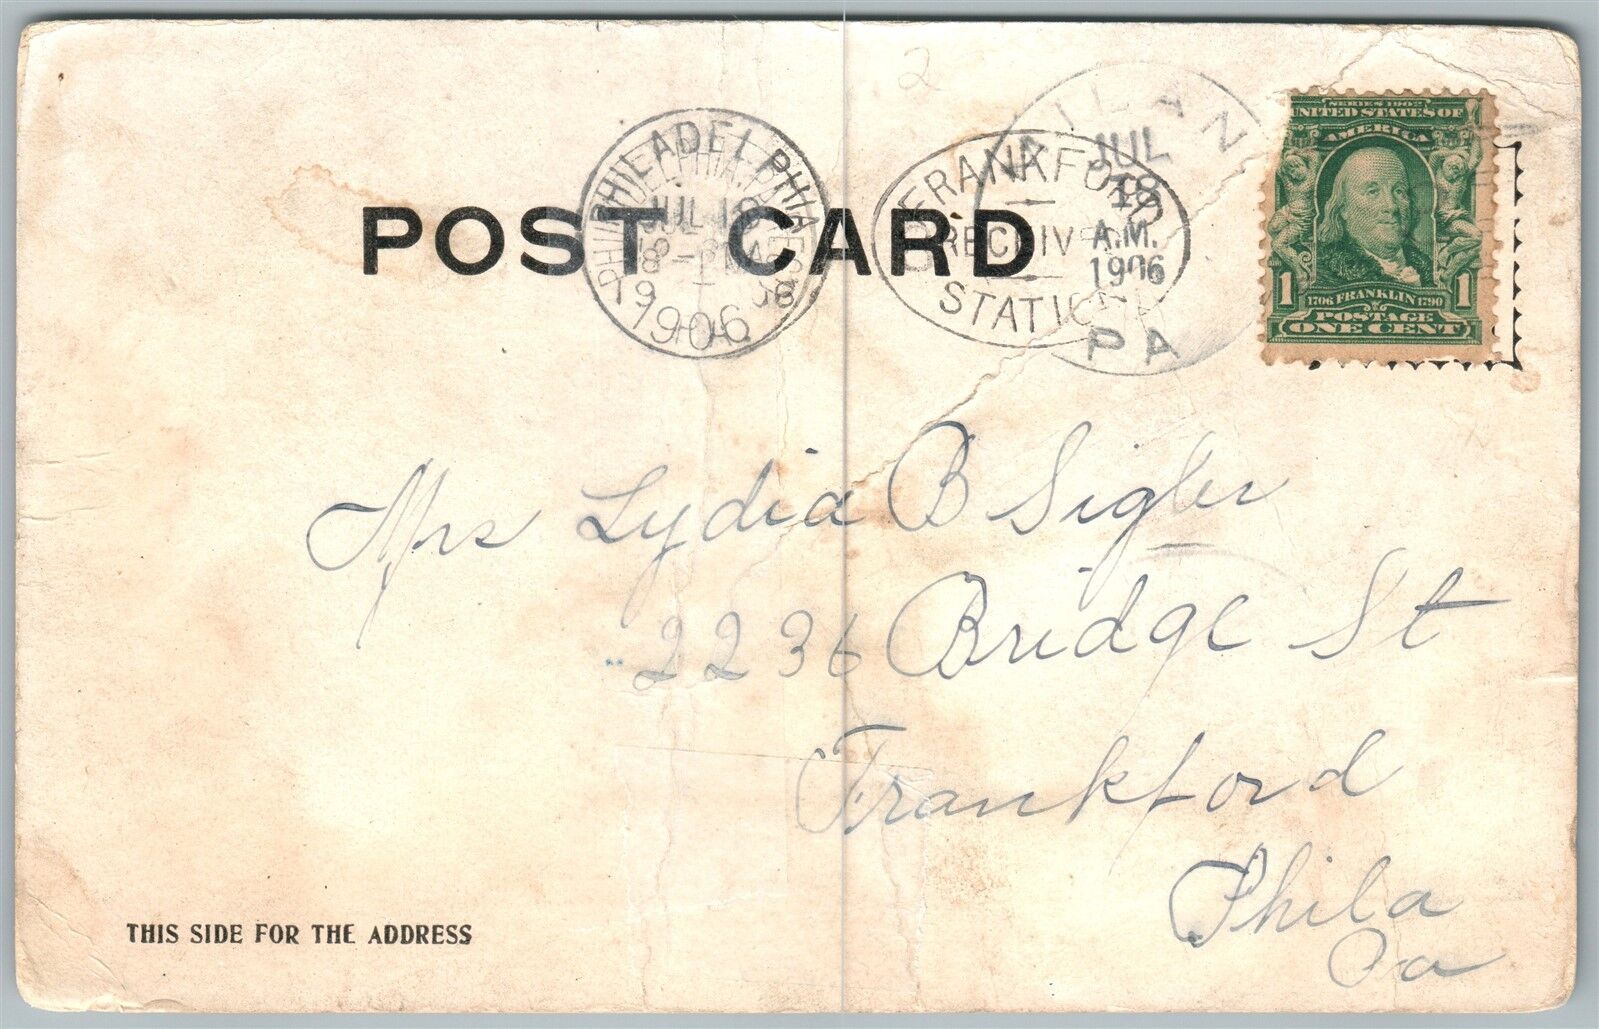 POST CARD
PHILADELPHIA
JUL 18
1906
FRANKFORD
RECEIVED
STATION
MILAN
JUL
18
A.M.
1906
PA
SERIES 1902
UNITED STATES OF
AMERICA
1706 FRANKLIN 1790
1 POSTAGE 1
ONE CENT
2
Mrs Lydia B Sigler
2236 Bridge St
Frankford
Phila
Pa
THIS SIDE FOR THE ADDRESS